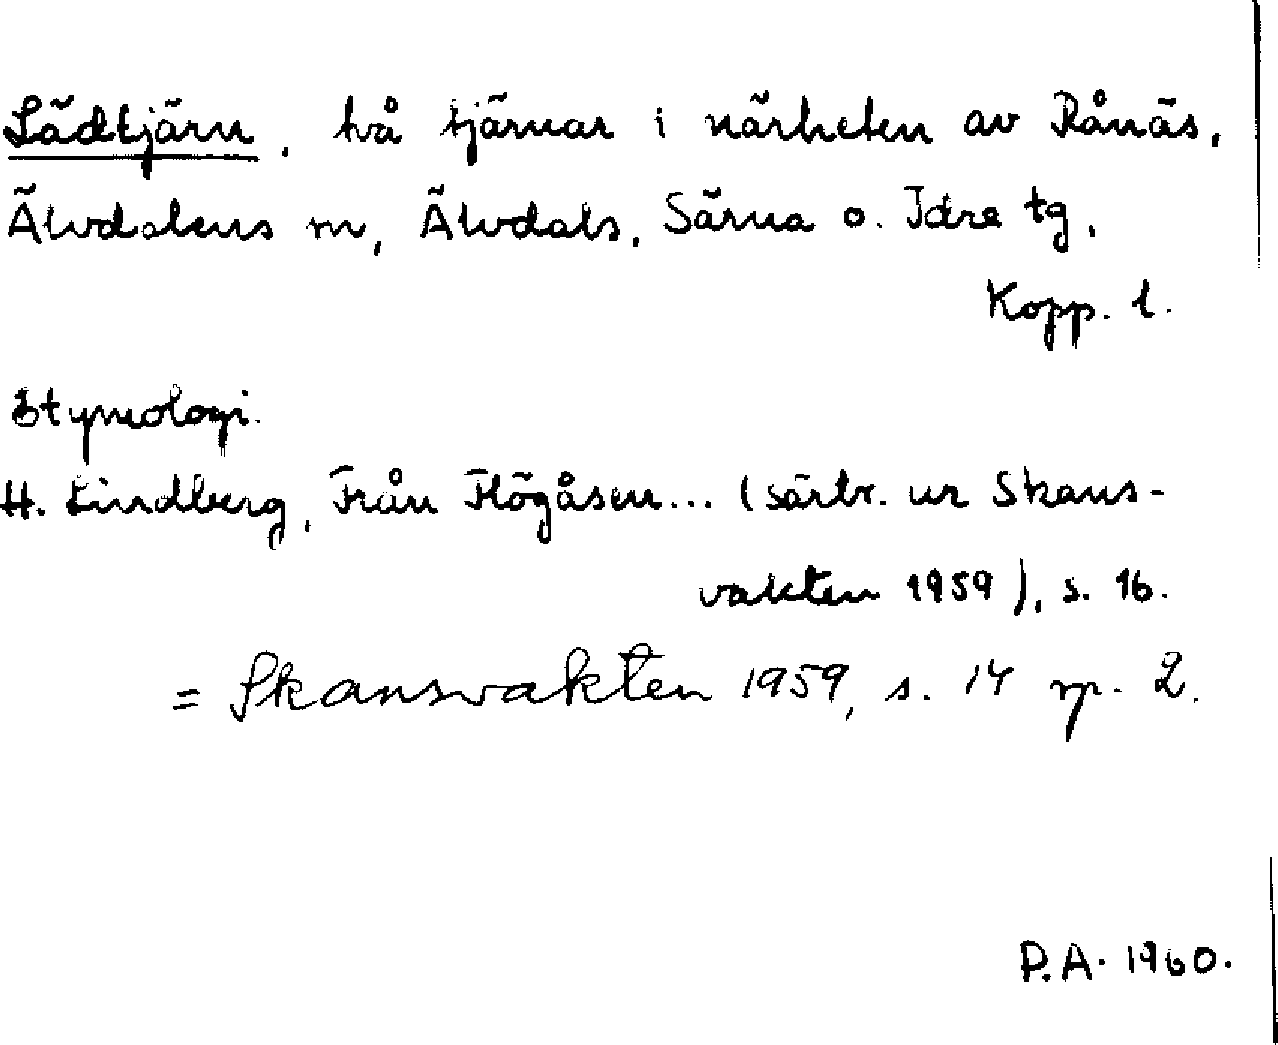 Lädtjärn, två tjärnar i närheten av Rånäs,
Älvdalens sn, Älvdals, Särna o. Idre tg,
Kopp. l.
Etymologi.
H. Lindberg, Från Högåsen... (särtr. ur Skans-
vakten 1959), s. 16.
= Skansvakten 1959, s. 14 sp. 2.
P.A. 1960.